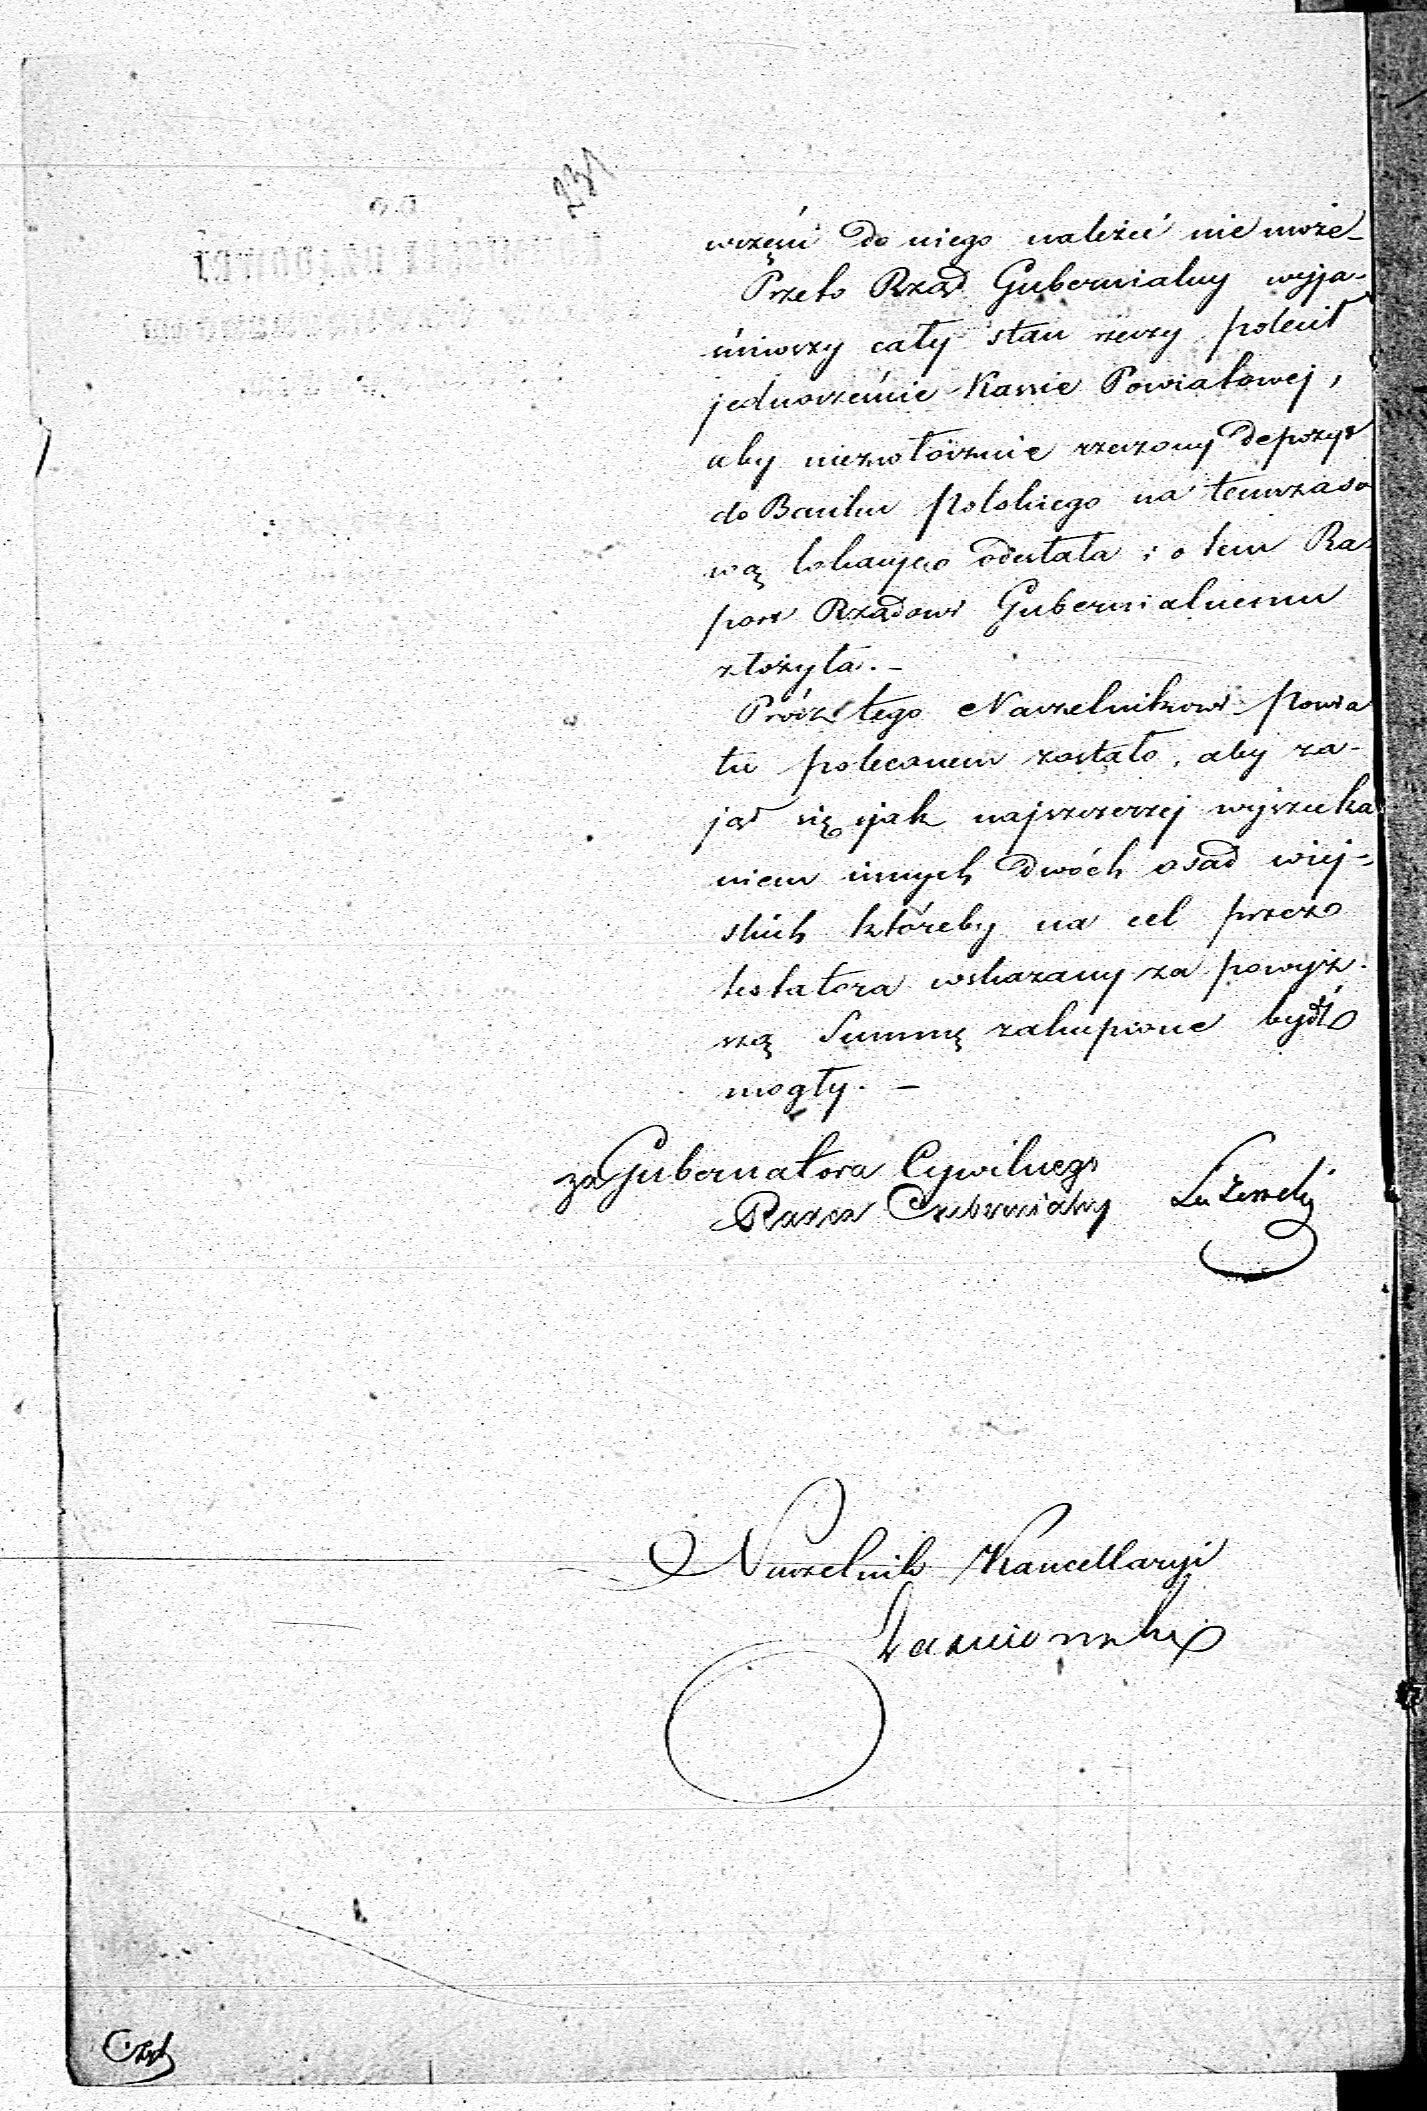 231
wczęści do niego należeć nie może_
Przeto Rząd Gubernialny wyja-
śniwszy cały stan rzeczy polecił
jednocześnie Kassie Powiatowej,
aby niezwłócznie rzeczony Depozyt
do Banku Polskiego na temczaso
wą lokacyją odesłała i o tem Ra-
port Rządowi Gubernialnemu
złożyła. –
Prócz tego Naczelnikowi Powia
tu poleconem zostało, aby za-
jął się jak najszczerzej wyszuka
niem innych dwóch osad wiej-
skich któreby na cel przez
testatora wskazany za powyż-
szą Summę zakupione być
mogły. –
za Gubernatora Cywilnego
Radca Gubernialny
Naczelnik Kancellaryi